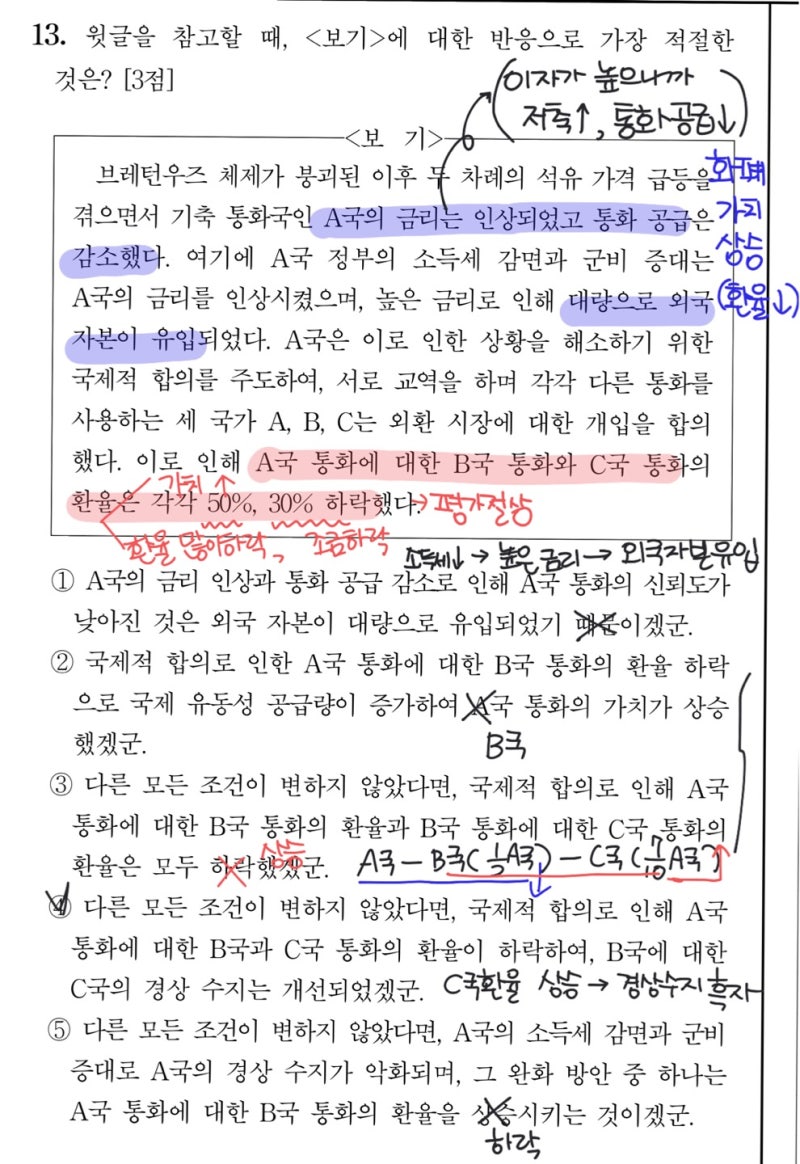 13. 윗글을 참고할 때, <보기>에 대한 반응으로 가장 적절한
것은? [3점]
(이자가 높으니까
저축↑, 통화공급↓)
<보 기>
브레턴우즈 체제가 붕괴된 이후 두 차례의 석유 가격 급등을
겪으면서 기축 통화국인 A국의 금리는 인상되었고 통화 공급은
감소했다. 여기에 A국 정부의 소득세 감면과 군비 증대는
A국의 금리를 인상시켰으며, 높은 금리로 인해 대량으로 외국
자본이 유입되었다. A국은 이로 인한 상황을 해소하기 위한
국제적 합의를 주도하여, 서로 교역을 하며 각각 다른 통화를
사용하는 세 국가 A, B, C는 외환 시장에 대한 개입을 합의
했다. 이로 인해 A국 통화에 대한 B국 통화와 C국 통화의
환율은 각각 50%, 30% 하락했다.
화폐
가치
상승
(환율↓)
가치↑
→평가절상
환율 많이하락, 조금하락
소득세↓→높은금리→외국자본유입
① A국의 금리 인상과 통화 공급 감소로 인해 A국 통화의 신뢰도가
낮아진 것은 외국 자본이 대량으로 유입되었기 때문이겠군.
② 국제적 합의로 인한 A국 통화에 대한 B국 통화의 환율 하락
으로 국제 유동성 공급량이 증가하여 A국 통화의 가치가 상승
했겠군.
B국
③ 다른 모든 조건이 변하지 않았다면, 국제적 합의로 인해 A국
통화에 대한 B국 통화의 환율과 B국 통화에 대한 C국 통화의
환율은 모두 하락했겠군.
상승
A국-B국(1/2A국)-C국(7/10A국)
④ 다른 모든 조건이 변하지 않았다면, 국제적 합의로 인해 A국
통화에 대한 B국과 C국 통화의 환율이 하락하여, B국에 대한
C국의 경상 수지는 개선되었겠군.
C국환율 상승→경상수지 흑자
⑤ 다른 모든 조건이 변하지 않았다면, A국의 소득세 감면과 군비
증대로 A국의 경상 수지가 악화되며, 그 완화 방안 중 하나는
A국 통화에 대한 B국 통화의 환율을 상승시키는 것이겠군.
하락